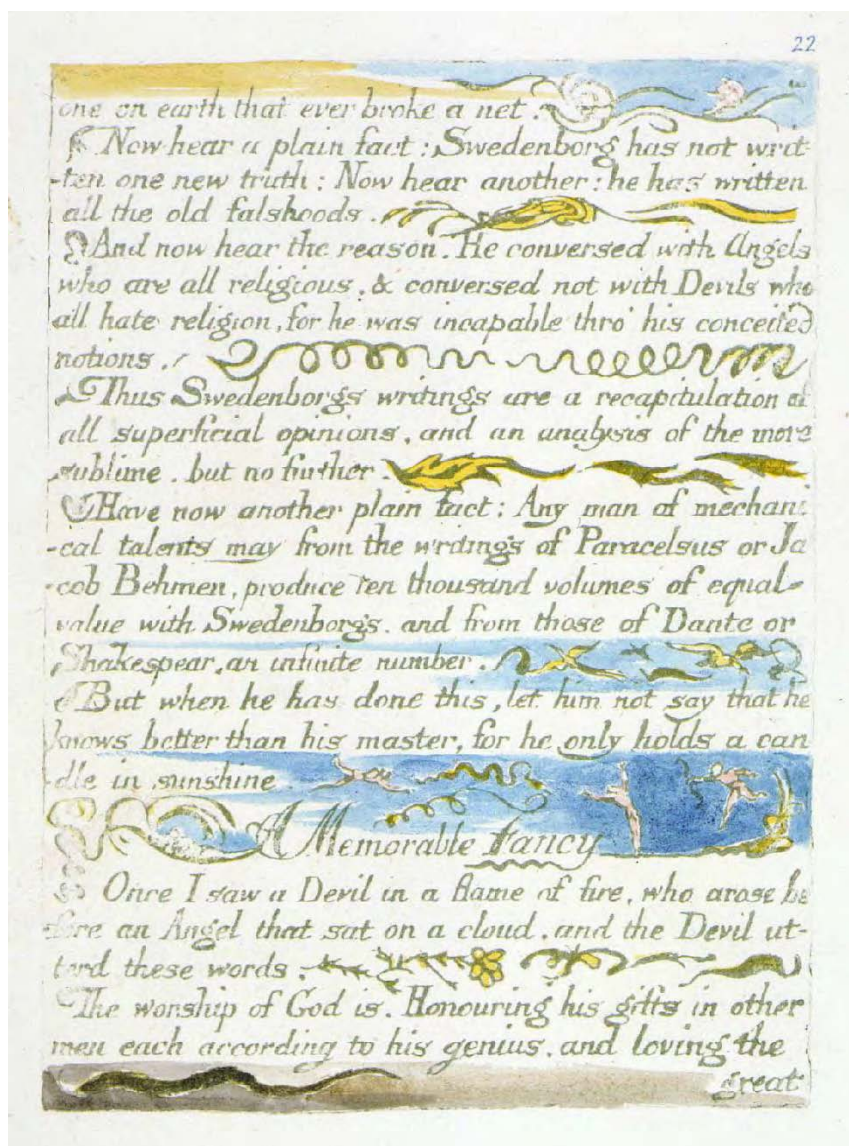 22
one on earth that ever broke a net.
Now hear a plain fact: Swedenborg has not writ-
-ten one new truth: Now hear another: he has written
all the old falshoods.
And now hear the reason. He conversed with Angels
who are all religious, & conversed not with Devils who
all hate religion, for he was incapable thro' his conceited
notions.
Thus Swedenborgs writings are a recapitulation of
all superficial opinions, and an analysis of the more
sublime. but no further.
Have now another plain fact: Any man of mechani
-cal talents may from the writings of Paracelsus or Ja
-cob Behmen, produce ten thousand volumes of equal
value with Swedenborg's. and from those of Dante or
Shakespear, an infinite number.
But when he has done this, let him not say that he
knows better than his master, for he only holds a can
dle in sunshine.
A Memorable Fancy
Once I saw a Devil in a flame of fire, who arose be
-fore an Angel that sat on a cloud. and the Devil ut-
terd these words.
The worship of God is. Honouring his gifts in other
men each according to his genius. and loving the
great